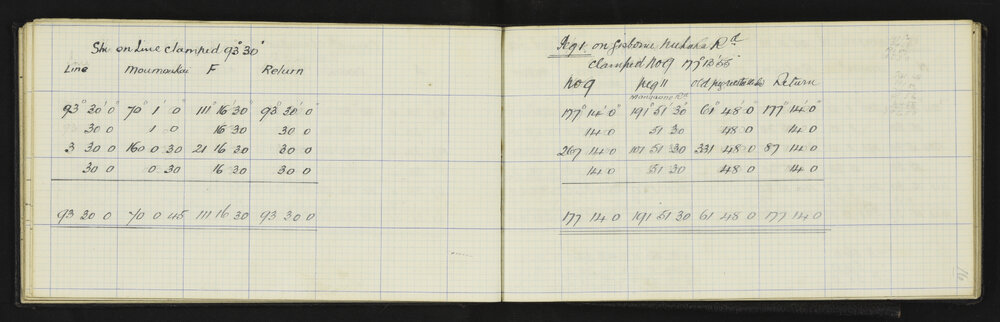 Stn on Line clamped 93° 30'
Line Moumoukai F Return
93° 30' 0" 70° 1' 0" 111° 16' 30" 93° 30' 0"
30 0 1 0 16 30 30 0
3 30 0 160 0 30 21 16 30 30 0
30 0 0 30 16 30 30 0
93 30 0 70 0 45 111 16 30 93 30 0
Peg 1. on Gisborne Nuhaka Rd
clamped No 9
No 9 Peg 11 old peg Return
Mangaone Rd
177° 14' 0" 191° 51' 30" 61° 48' 0" 177° 14' 0"
14 0 51 30 48 0 14 0
267 14 0 101 51 30 331 48 0 87 14 0
14 0 51 30 48 0 14 0
177 14 0 191 51 30 61 48 0 177 14 0